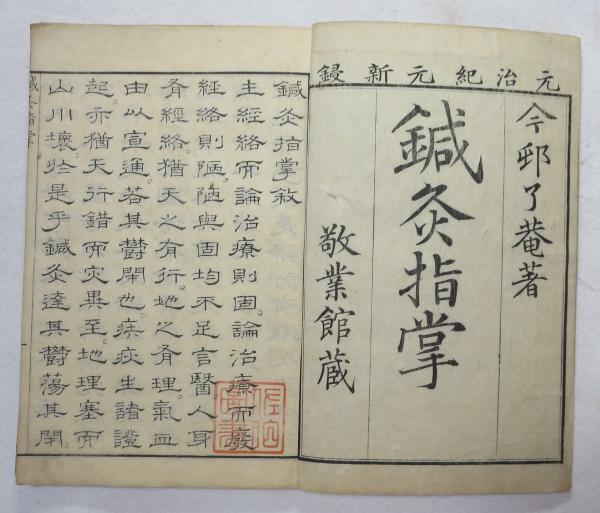 元治紀元新鋟
今邨了菴著
鍼灸指掌
敬業館蔵
鍼灸指掌敘
主經絡而論治療則固。論治療而廢
經絡則陋。陋與固均不足言醫。人身
有經絡。猶天之有行。地之有理。氣血
由以宣通。若其鬱閉也。疾疢生諸證
起。亦猶天行錯而災異至。地理塞而
山川壞。於是乎鍼灸達其鬱蕩其閉。
鍼灸指掌